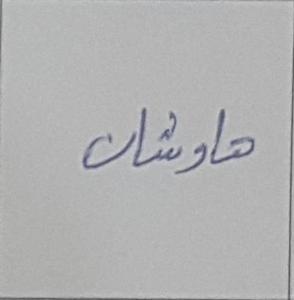 هاوشان